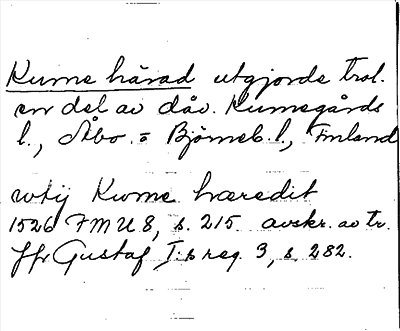 Kumo härad utgjorde trol.
en del av dåv. Kumogårds
l., Åbo = Björneb. l., Finland
Kwmo hæredit
1526 FMU 8, s. 215 avskr. av tr.
Jfr Gustaf I:s reg. 3, s. 282.